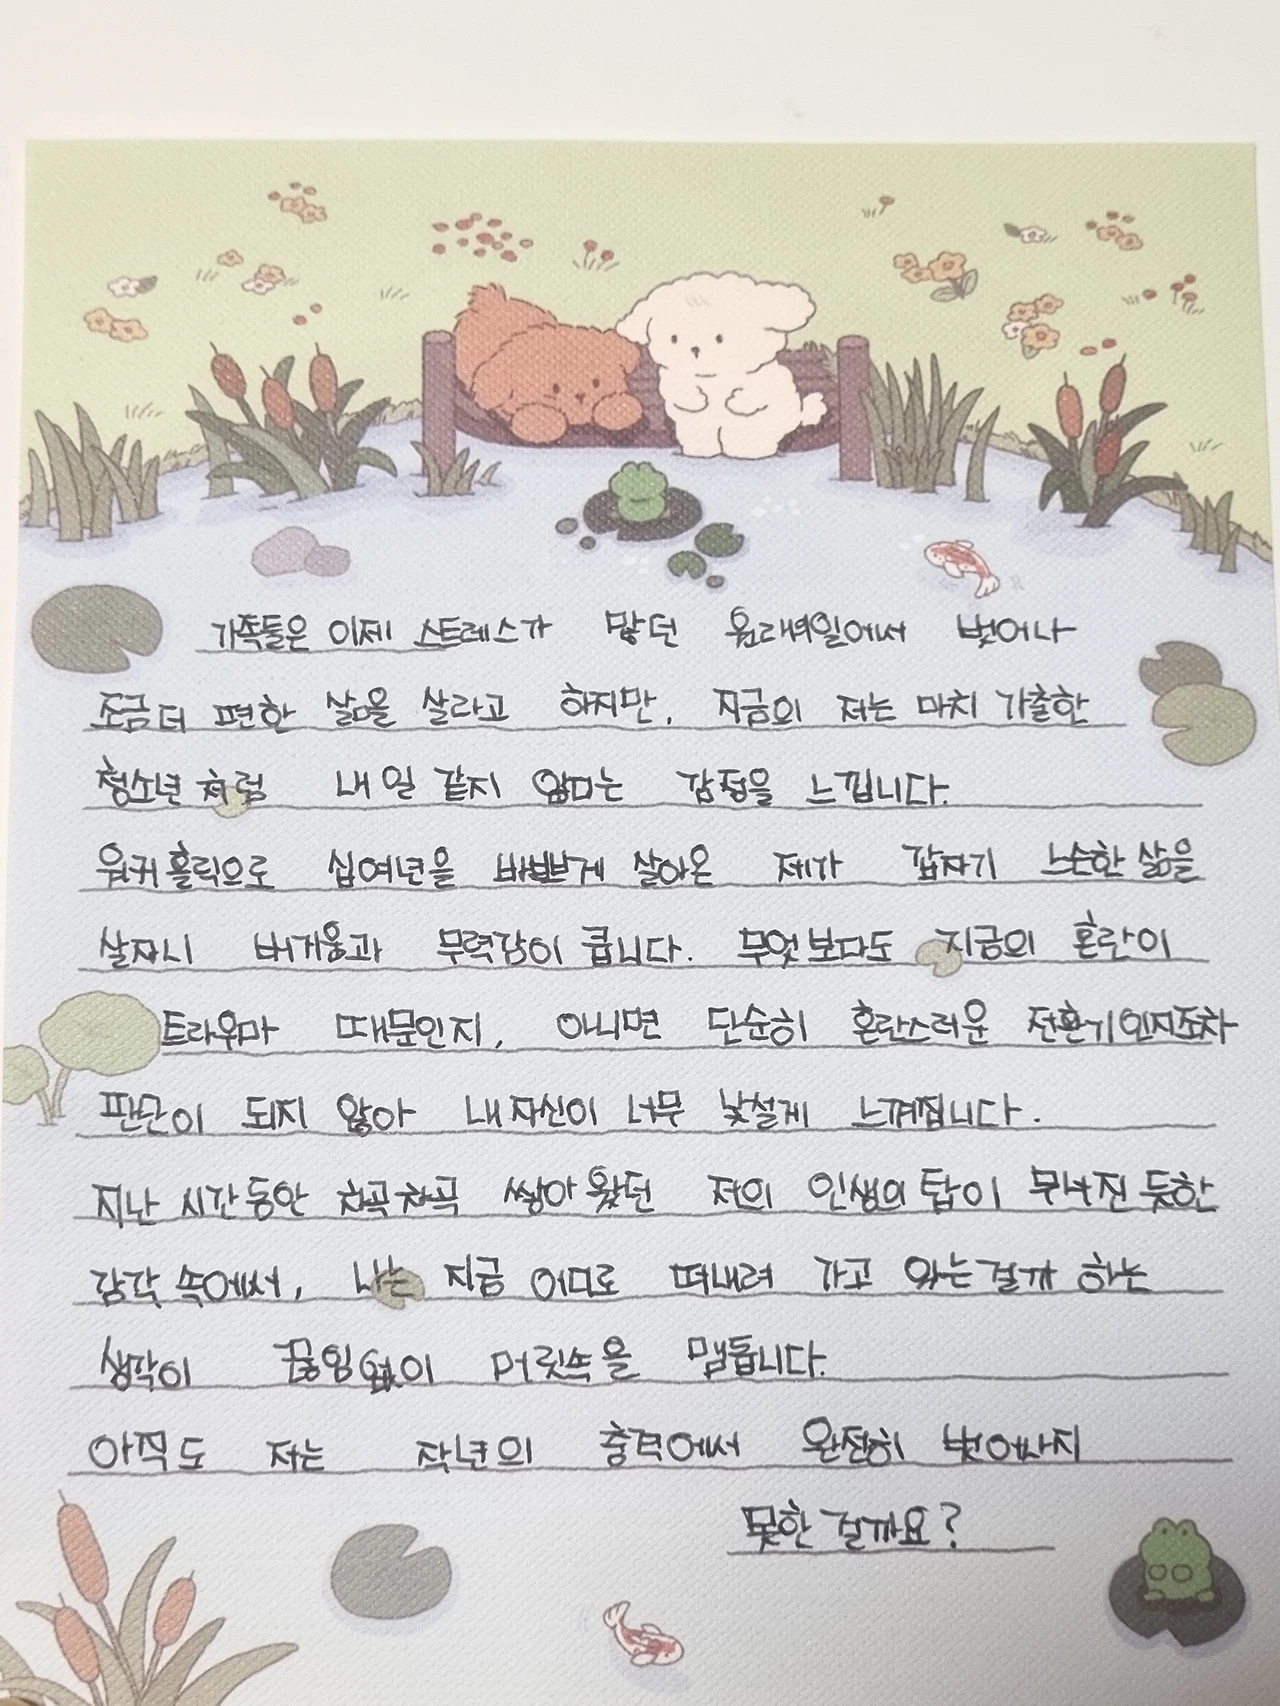 가족들은 이제 스트레스가 많던 원래일에서 벗어나
조금더 편한 삶을 살라고 하지만, 지금의 저는 마치 가출한
청소년 처럼 내 일 같지 않은 감정을 느낍니다.
워커홀릭으로 십여년을 바쁘게 살아온 제가 갑자기 느슨한 삶을
살자니 버거움과 무력감이 큽니다. 무엇보다도 지금의 혼란이
트라우마 때문인지, 아니면 단순히 혼란스러운 전환기인지조차
판단이 되지 않아 내 자신이 너무 낯설게 느껴집니다.
지난 시간동안 차곡차곡 쌓아 왔던 저의 인생의 탑이 무너진 듯한
감각 속에서, 나는 지금 어디로 떠내려 가고 있는걸까 하는
생각이 끊임없이 머릿속을 맴돕니다.
아직도 저는 작년의 충격에서 완전히 벗어나지
못한 걸까요?